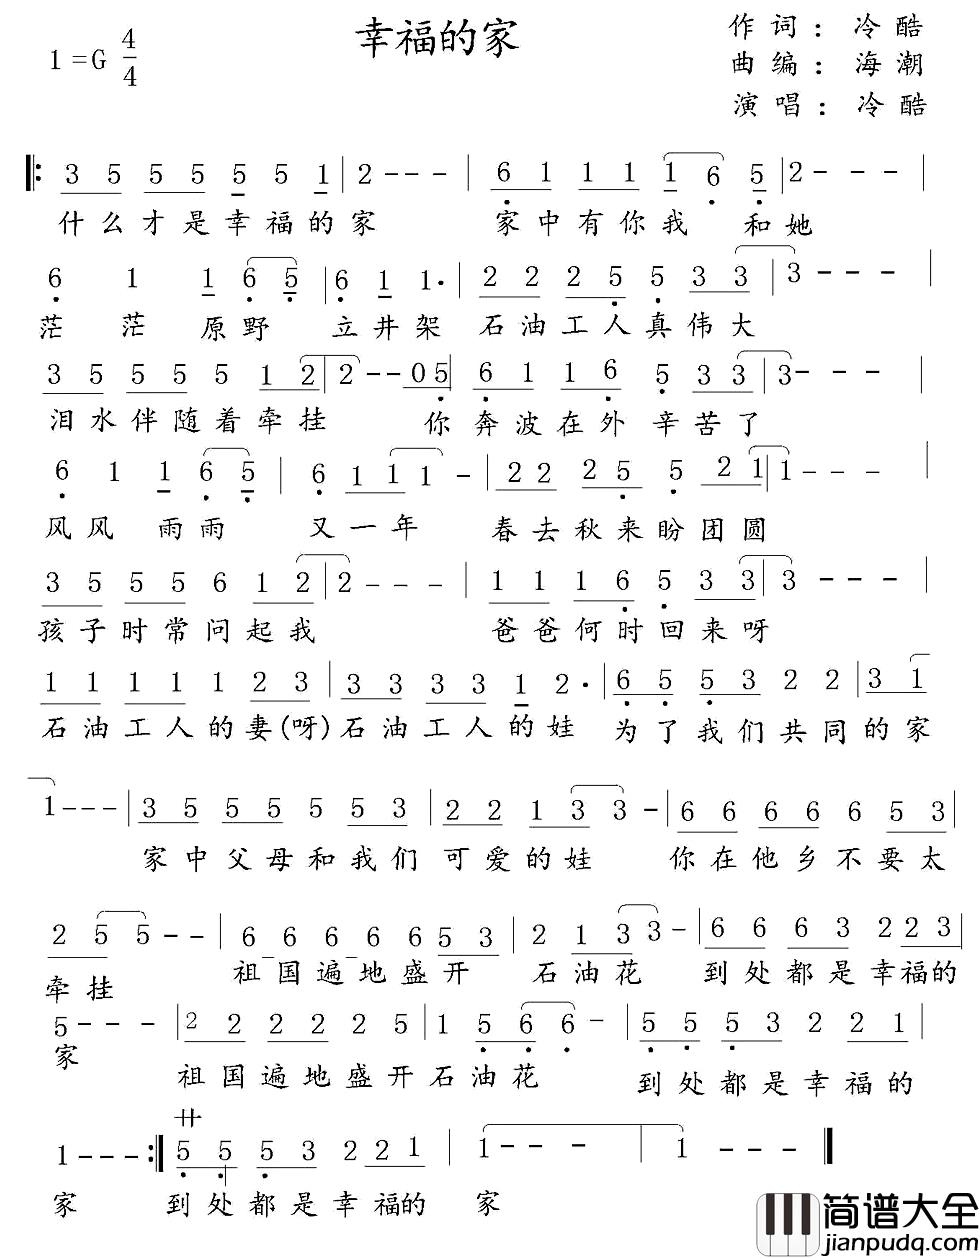 幸福的家
1=G 4/4
作词：冷酷
曲编：海潮
演唱：冷酷
3 5 5 5 5 5 1 | 2 - - - | 6 1 1 1 1 6 5 | 2 - - - |
什么才是幸福的家 家中有你我 和她
6 1 1 6 5 | 6 1 1· | 2 2 2 5 5 3 3 | 3 - - - |
茫 茫 原野 立井架 石油工人真伟大
3 5 5 5 5 1 2 | 2 - - 0 5 | 6 1 1 6 5 3 3 | 3 - - - |
泪水伴随着牵挂 你奔波在外 辛苦了
6 1 1 6 5 | 6 1 1 1 - | 2 2 2 5 5 2 1 | 1 - - - |
风风 雨雨 又一年 春去秋来盼团圆
3 5 5 5 6 1 2 | 2 - - - | 1 1 1 6 5 3 3 | 3 - - - |
孩子时常问起我 爸爸何时回来呀
1 1 1 1 1 2 3 | 3 3 3 3 1 2· | 6 5 5 3 2 2 | 3 1
石油工人的妻(呀)石油工人的娃 为了我们共同的家
1 - - - | 3 5 5 5 5 5 3 | 2 2 1 3 3 - | 6 6 6 6 6 5 3 |
家中父母和我们 可爱的娃 你在他乡不要太
2 5 5 - - | 6 6 6 6 6 5 3 | 2 1 3 3 - | 6 6 6 3 2 2 3 |
牵挂 祖国遍地盛开 石油花 到处都是幸福的
5 - - - | 2 2 2 2 2 2 5 | 1 5 6 6 - | 5 5 5 3 2 2 1 |
家 祖国遍地盛开石油花 到处都是幸福的
1 - - - :| 5 5 5 3 2 2 1 | 1 - - - 1 - - - |
家 到处都是幸福的 家
简谱大全
jianpudq.com